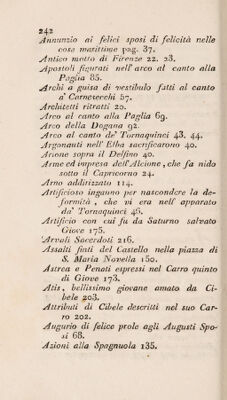 242
Annunzio ai felici sposi di felicità nelle
cose marittime pag. 37.
Antico motto di Firenze 22. 23.
Apostoli figurati nell'arco al canto alla
Paglia 85.
Archi a guisa di vestibulo fatti al canto
a' Carnesecchi 57.
Architetti ritratti 20.
Arco al canto alla Paglia 69.
Arco della Dogana 92.
Arco al canto da' Tornaquinci 43. 44.
Argonauti nell' Elba sacrificarono 40.
Arione sopra il Delfino 40.
Arme ed impresa dell'Alcione, che fa nido
sotto il Capricorno 24.
Arno addirizzato 114.
Artificioso inganno per nascondere la de-
formità, che vi era nell' apparato
da' Tornaquinci 46.
Artificio con cui fu da Saturno salvato
Giove 175.
Arvali Sacerdoti 216.
Assalti finti del Castello nella piazza di
S. Maria Novella 150.
Astrea e Penati espressi nel Carro quinto
di Giove 173.
Atis, bellissimo giovane amato da Ci-
bele 203.
Attributi di Cibele descritti nel suo Car-
ro 202.
Augurio di felice prole agli Augusti Spo-
si 68.
Azioni alla Spagnuola 135.